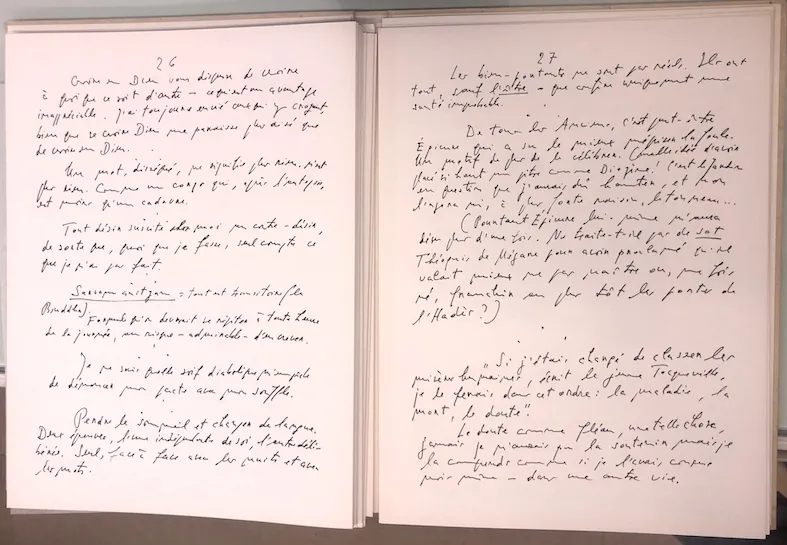 26
Croire en Dieu vous dispense de croire
à quoi que ce soit d'autre – ce qui est un avantage
inappréciable. J'ai toujours envié ceux qui y croyent,
bien que se croire Dieu me paraisse plus aisé que
de croire en Dieu.
Un mot, disséqué, ne signifie plus rien, n'est
plus rien. Comme un corps qui, après l'autopsie,
est moins qu'un cadavre.
Tout désir suscite chez moi un contre-désir,
de sorte que, quoi que je fasse, seul compte ce
que je n'ai pas fait.
Sarvam anityam = tout est transitoire (le
Bouddha).
Formule qu'on devrait se répéter à toute heure
de la journée, au risque – admirable – d'en crever.
Je ne sais quelle soif diabolique m'empêche
de dénoncer mon pacte avec mon souffle.
Perdre le sommeil et changer de langue.
Deux épreuves, l'une indépendante de soi, l'autre déli-
bérée. Seul, face à face avec les nuits et avec
les mots.
27
Les bien-portants ne sont pas réels. Ils ont
tout, sauf l'être – que confère uniquement une
santé improbable.
De tous les Anciens, c'est peut-être
Épicure qui a su le mieux mépriser la foule.
Un motif de plus de le célébrer. Quelle idée d'avoir
placé si haut un pitre comme Diogène! C'est le Jardin
en question que j'aurais dû hanter, et non
l'agora ni, à plus forte raison, le tonneau...
(Pourtant Épicure lui-même m'aura
déçu plus d'une fois. Ne traite-t-il pas de sot
Théognis de Mégare pour avoir proclamé qu'il
valait mieux ne pas naître ou, une fois
né, franchir au plus tôt les portes de
l'Hadès?)
"Si j'étais chargé de classer les
misères humaines, écrit le jeune Tocqueville,
je le ferais dans cet ordre: la maladie, la
mort, le doute".
Le doute comme fléau, une telle chose,
jamais je n'aurais pu la soutenir mais je
la comprends comme si je l'avais conçue
moi-même – dans une autre vie.